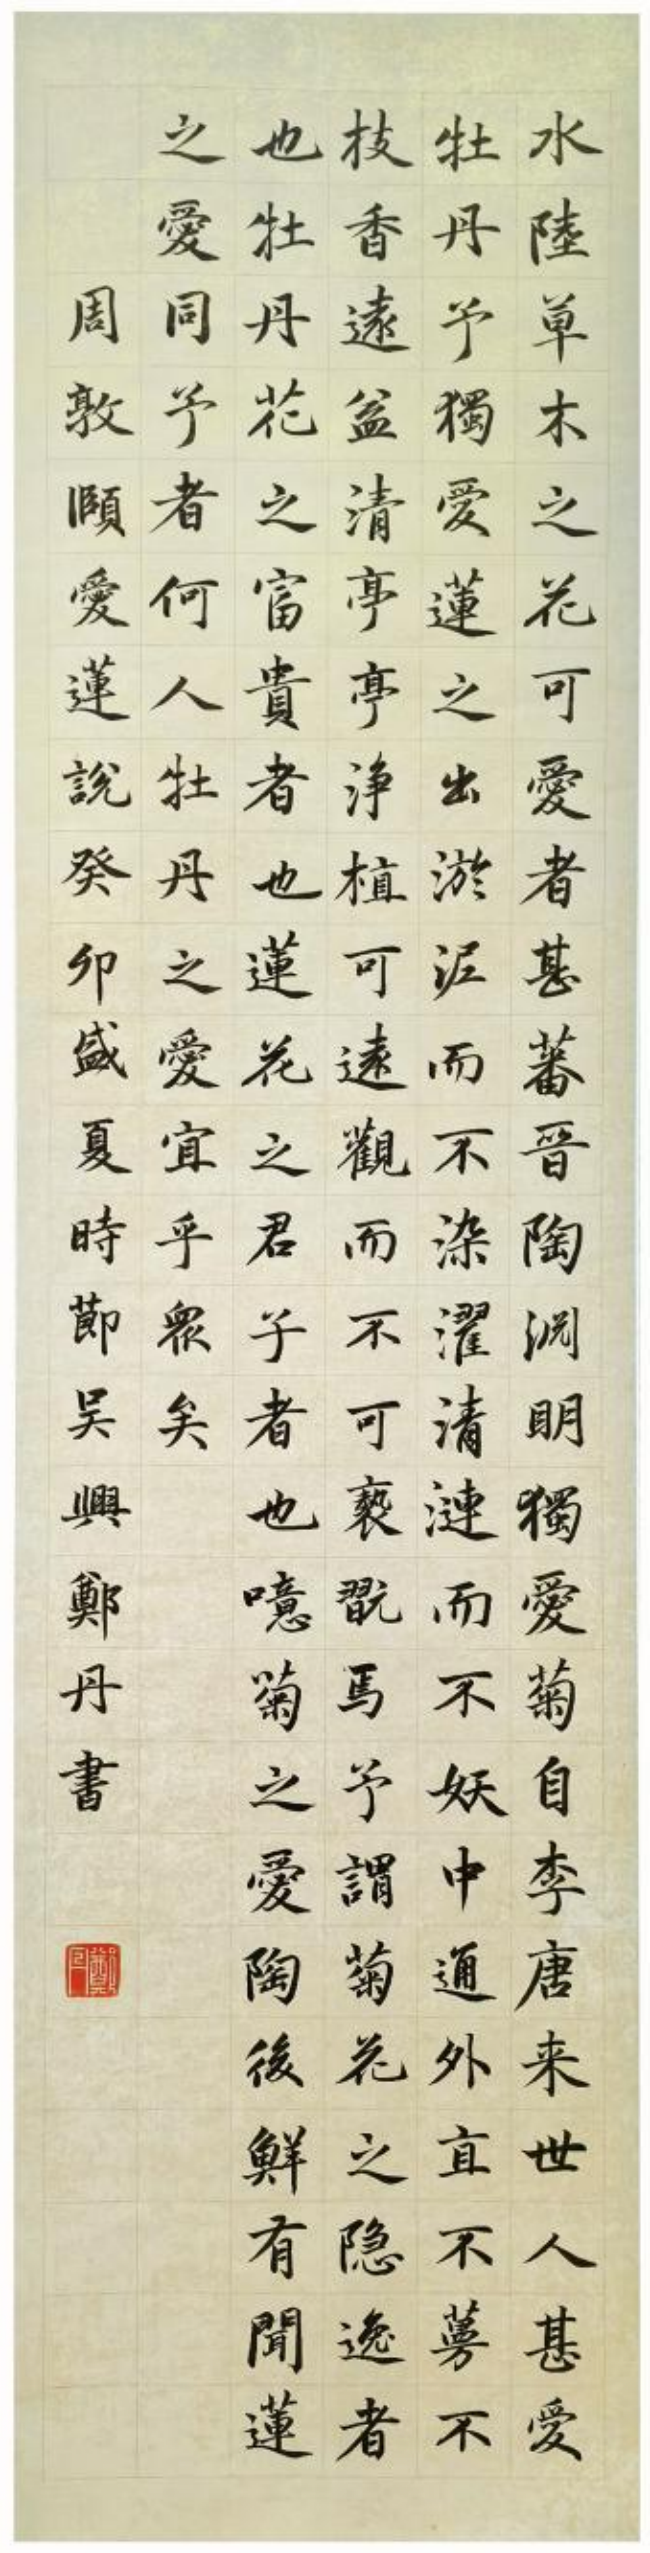 水陸草木之花可愛者甚蕃晋陶渊明獨愛菊自李唐来世人甚愛
牡丹予獨愛蓮之出淤泥而不染濯清漣而不妖中通外直不蔓不
枝香遠益清亭亭净植可遠觀而不可褻翫焉予謂菊花之隐逸者
也牡丹花之富貴者也蓮花之君子者也噫菊之愛陶後鮮有聞蓮
之愛同予者何人牡丹之愛宜乎眾矣
周敦頤愛蓮說癸卯盛夏時節吴興鄭丹書